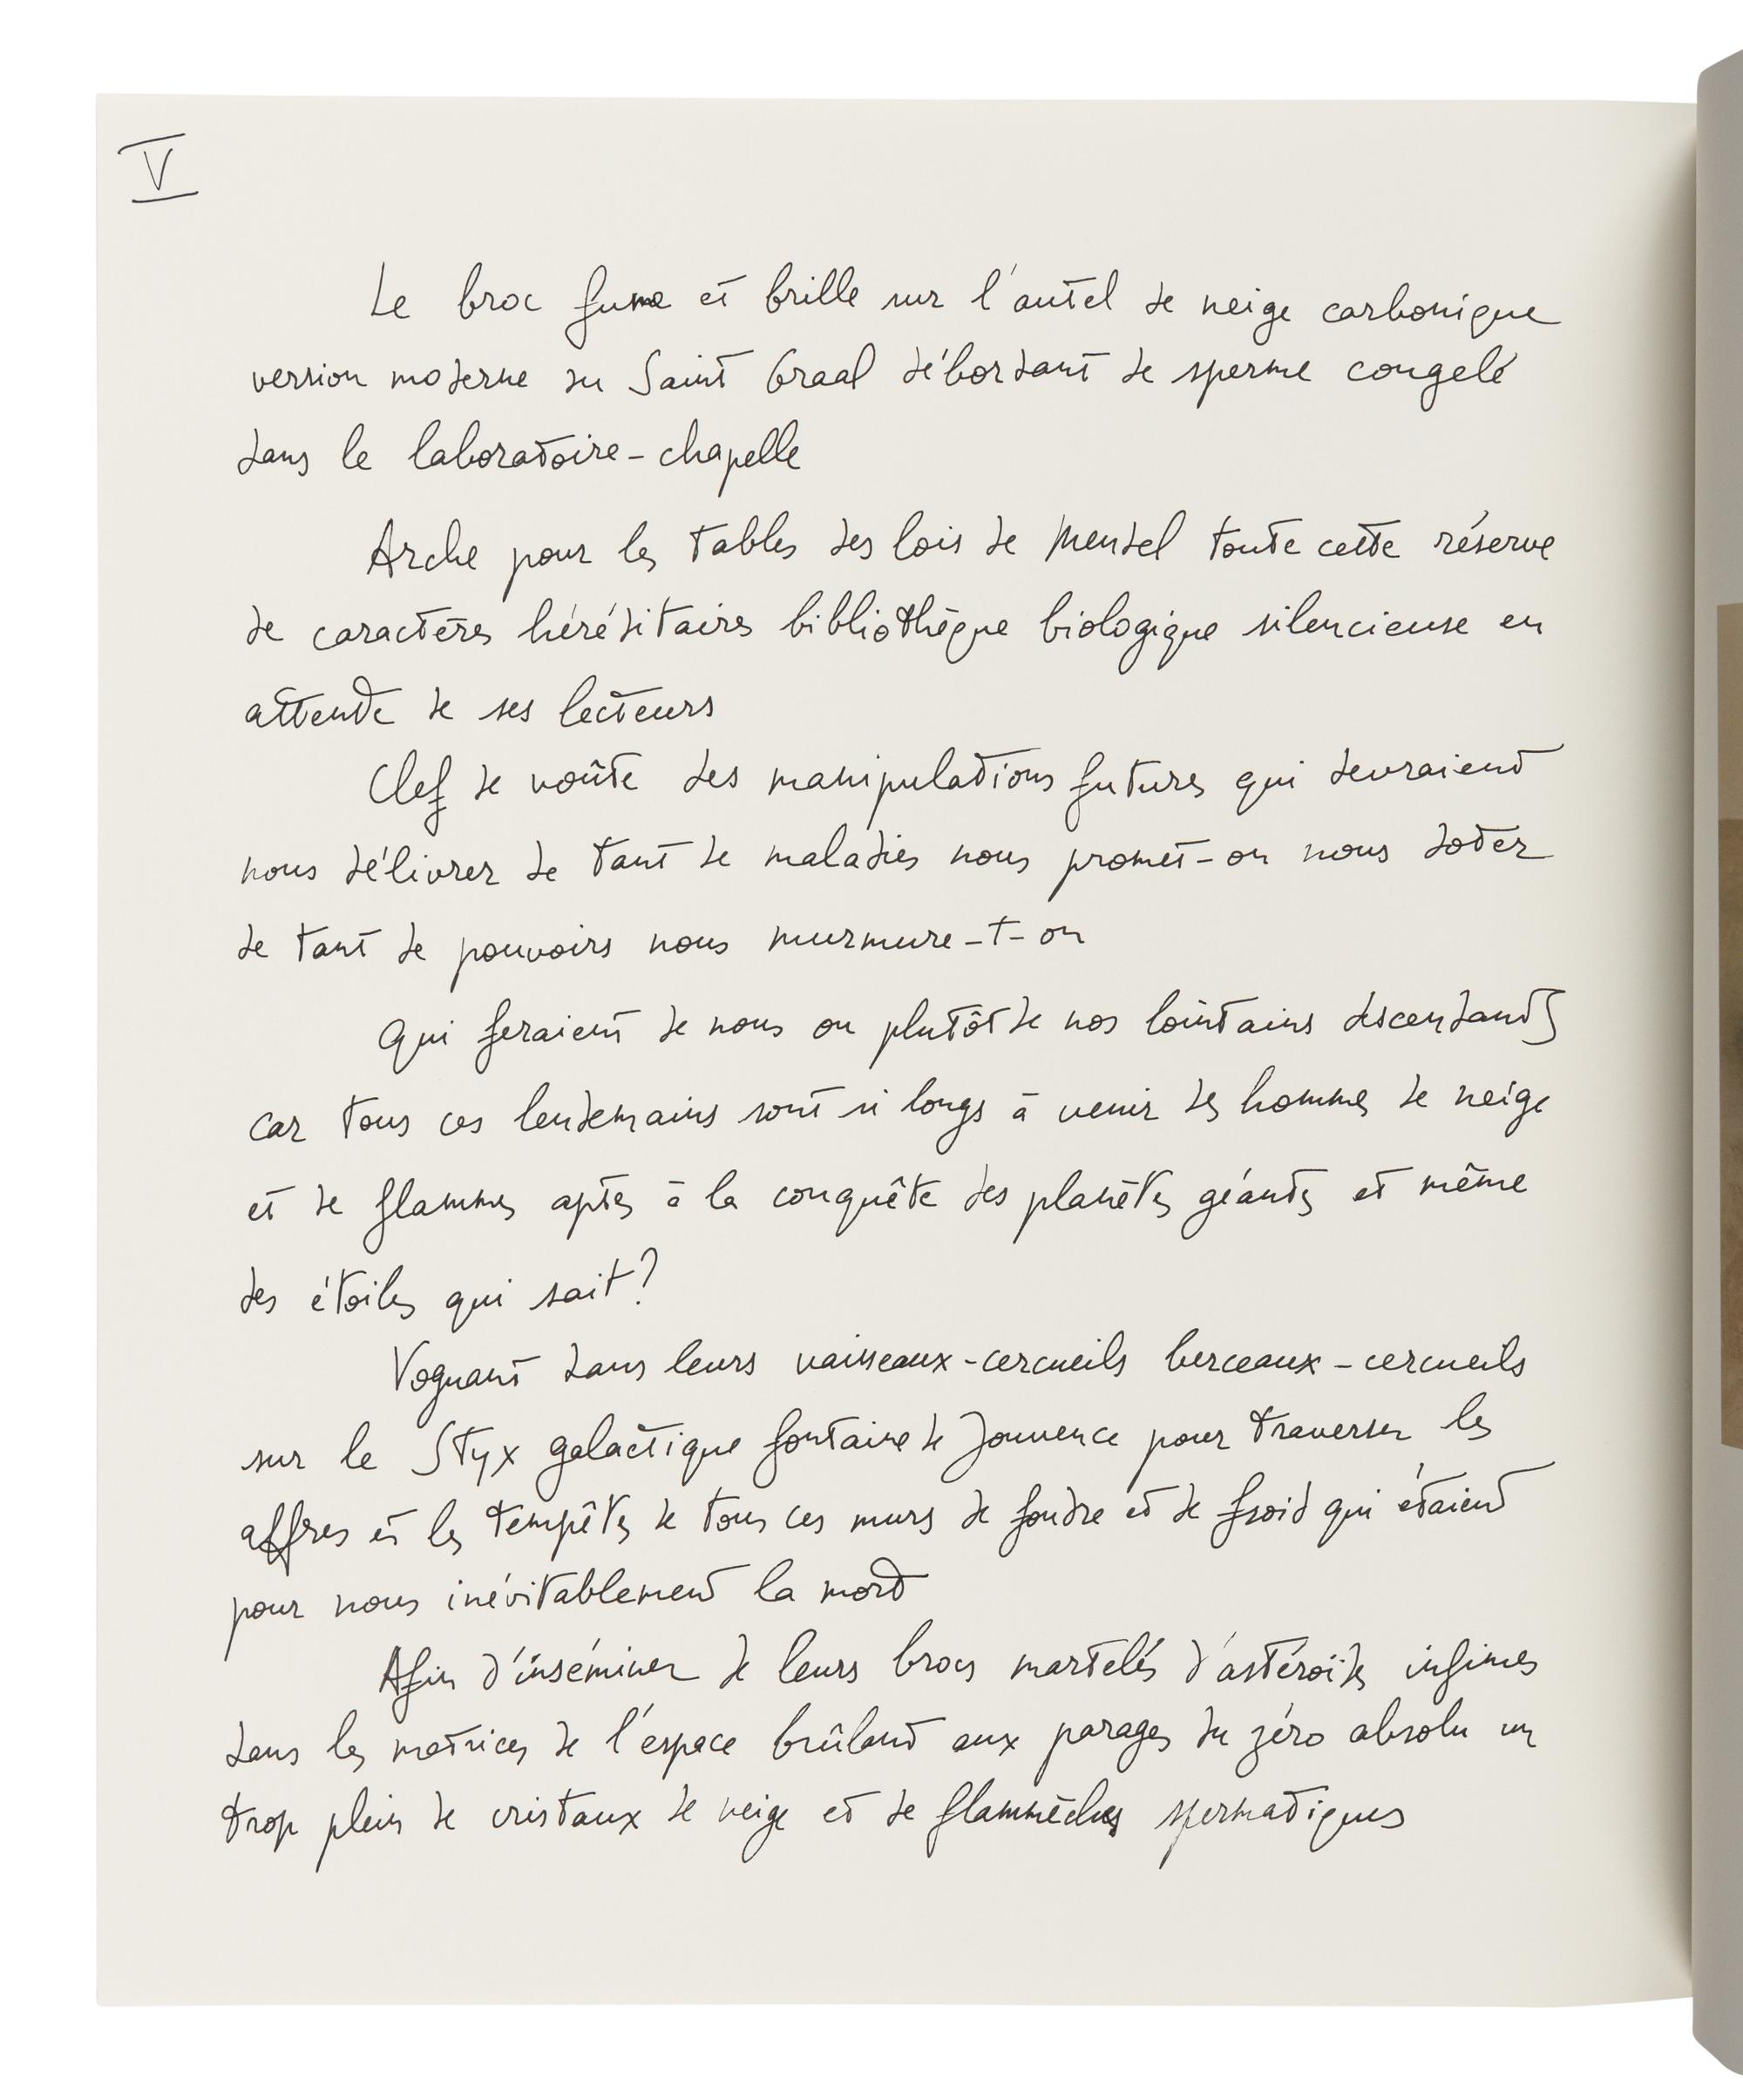 V
Le broc fume et brille sur l'autel de neige carbonique
version moderne du Saint Graal débordant de sperme congelé
dans le laboratoire-chapelle
Arche pour les tables des lois de Mendel toute cette réserve
de caractères héréditaires bibliothèque biologique silencieuse en
attente de ses lecteurs
Clef de voûte des manipulations futures qui devraient
nous délivrer de tant de maladies nous promet-on nous doter
de tant de pouvoirs nous murmure-t-on
Qui feraient de nous ou plutôt de nos lointains descendants
car tous ces lendemains sont si longs à venir des hommes de neige
et de flammes aptes à la conquête des planètes géantes et même
des étoiles qui sait?
Voguant dans leurs vaisseaux-cercueils berceaux-cercueils
sur le Styx galactique fontaine de Jouvence pour traverser les
affres et les tempêtes de tous ces murs de foudre et de froid qui étaient
pour nous inévitablement la mort
Afin d'inséminer de leurs brocs martelés d'astéroïdes infimes
dans les matrices de l'espace brûlant aux parages du zéro absolu un
trop plein de cristaux de neige et de flammèches spermatiques